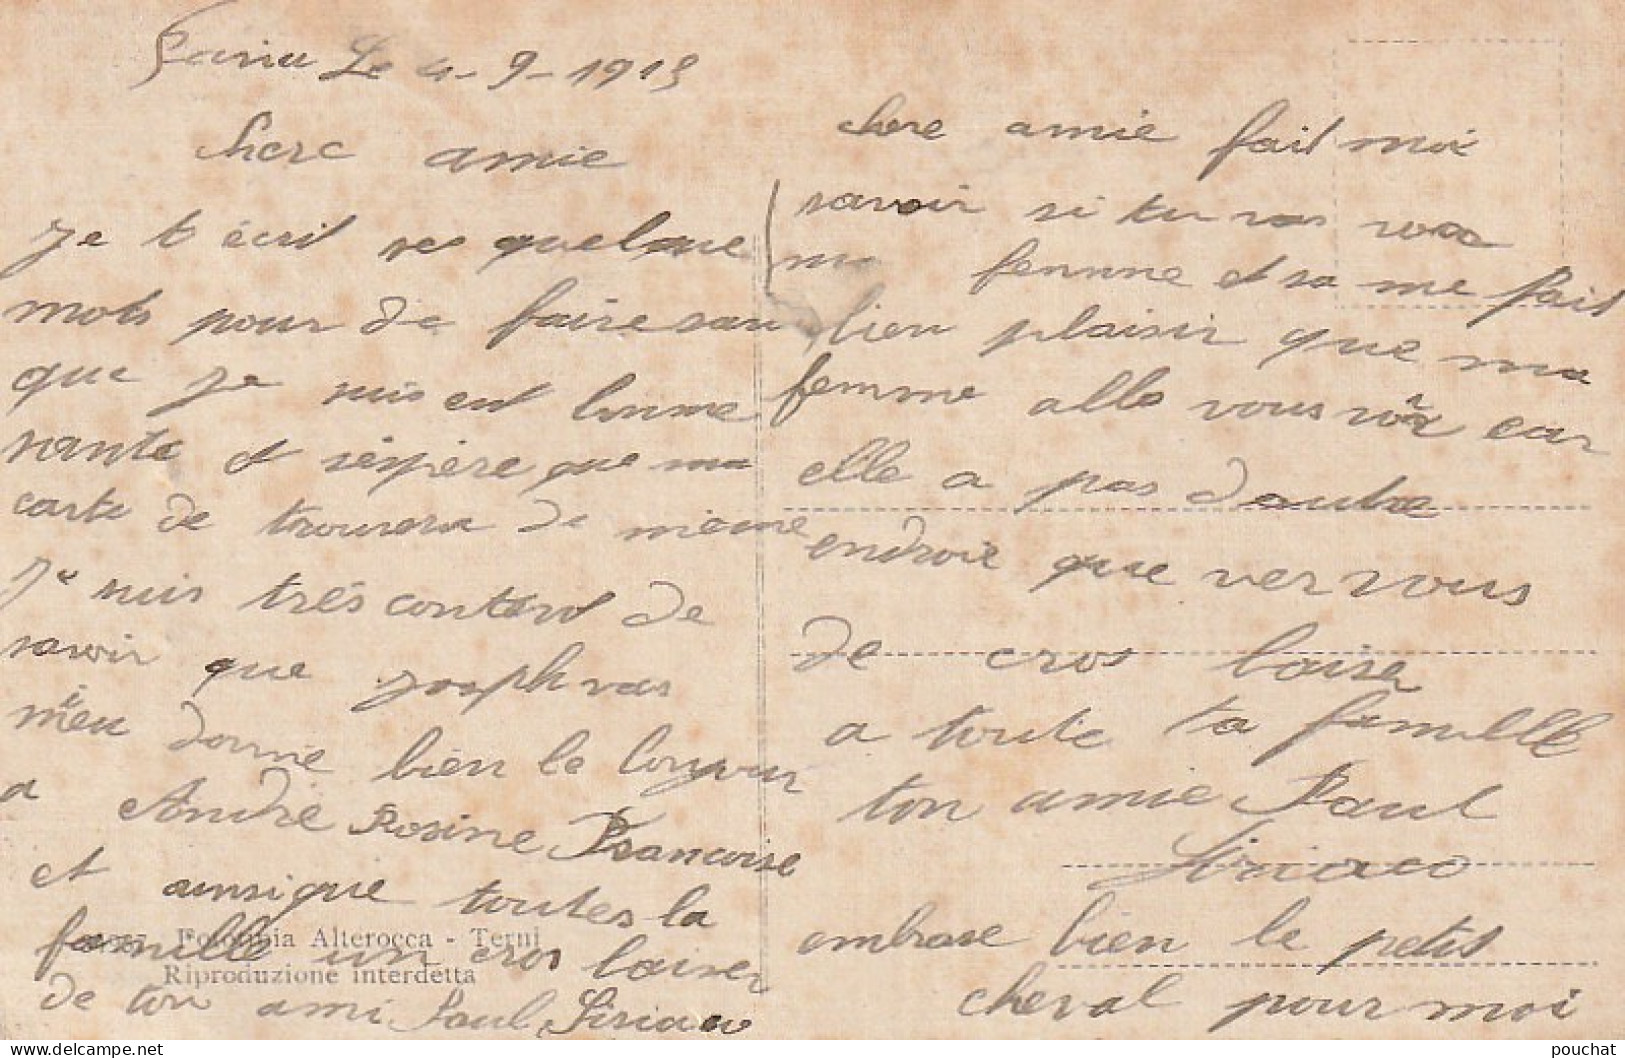 Le 4-9-1915
chere amie
Je t écrit ses quelque
mots pour de faire savu
que je suis ent bonne
sante et j'éspère que ma
carte de trouvera de même
Je suis très contend de
savoir que joseph vas
mieu donne bien le bonjour
a André Rosine Francoise
et ainsi que toutes la
famille un cros baiser
de ton ami Paul Siriaco
chere amie fait moi
savoir si tu vas voir
ma femme et sa me fait
bien plaisir que ma
femme alle vous voir car
elle a pas dautre
endroie que ver vous
de cros baiser
a toute ta famille
ton amie Paul
Siriaco
embrase bien le petit
cheval pour moi
Alterocca - Terni
Riproduzione interdetta
pouchat